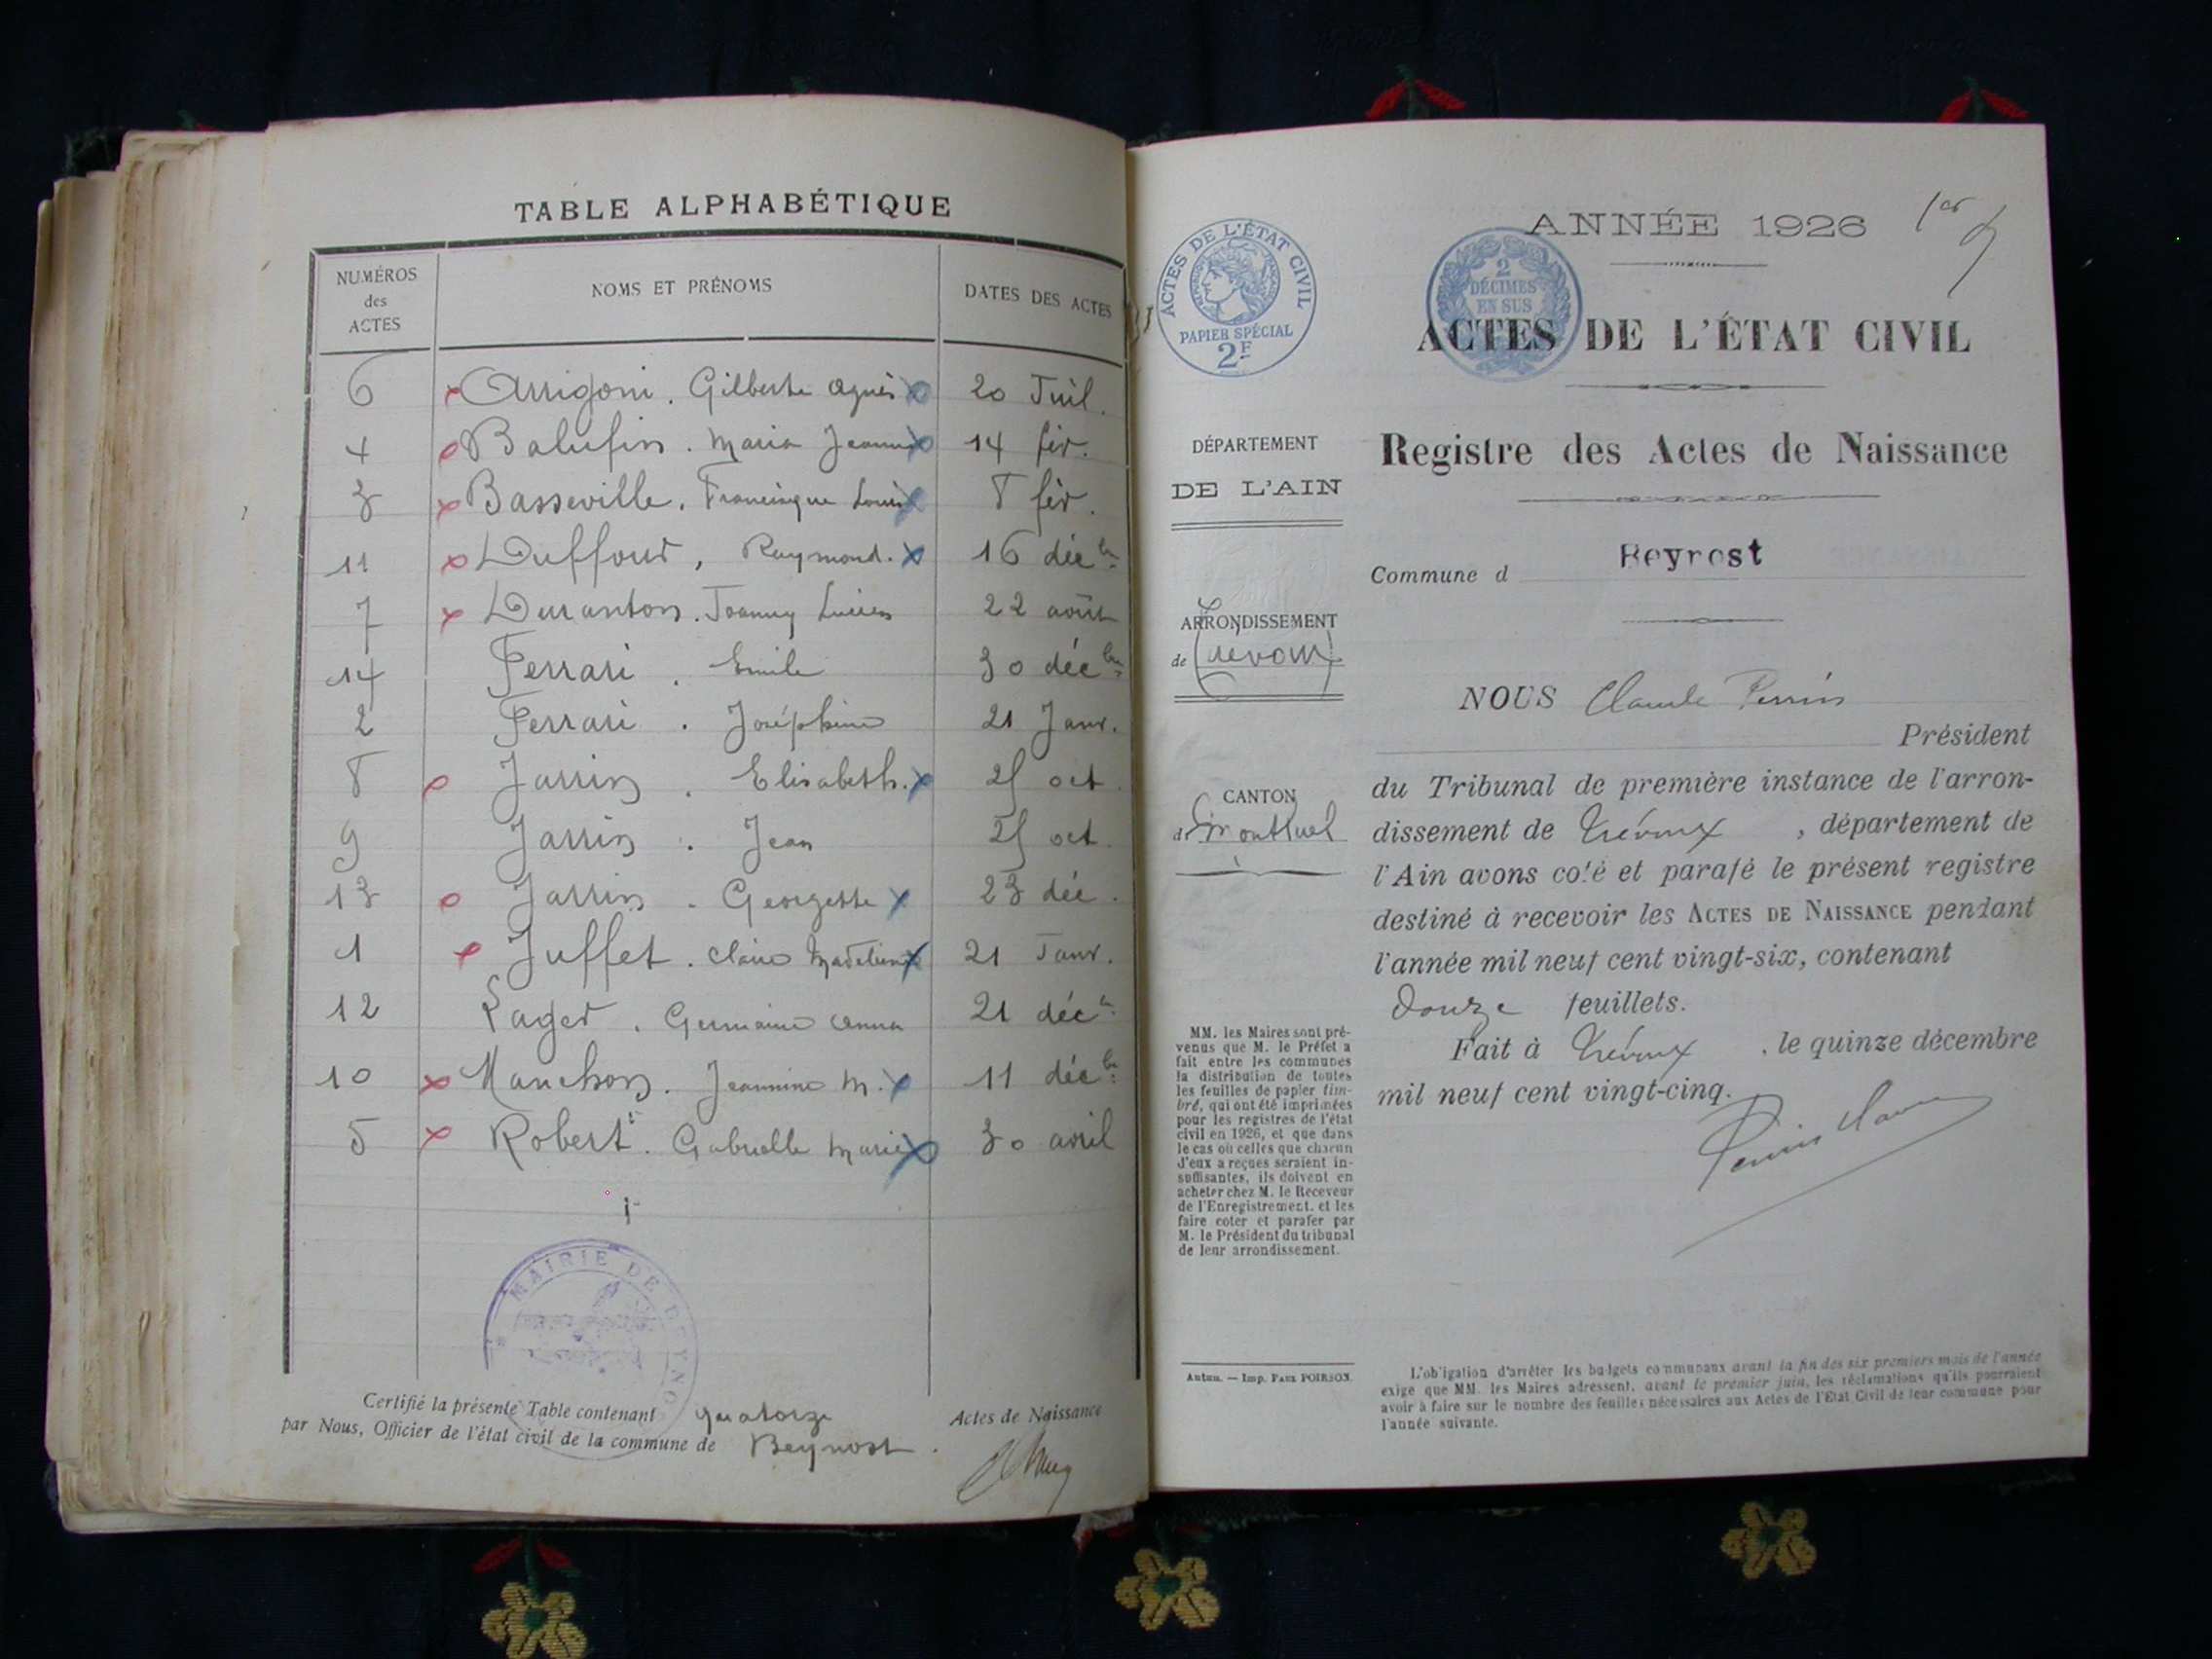 TABLE ALPHABÉTIQUE
NUMÉROS des ACTES NOMS ET PRÉNOMS DATES DES ACTES
6 Arrigoni. Gilberte Agnès 20 Juil.
4 Balufin. Maria Jeanne 14 fév.
3 Basseville. Francisque Louis 8 fév.
11 Duffour, Raymond. 16 déc bre
7 Duranton. Joanny Lucien 22 août
14 Ferrari. Emile 30 déc bre
2 Ferrari. Joséphine 21 Janv.
8 Jarrin. Elisabeth. 25 oct.
9 Jarrin. Jean 25 oct.
13 Jarrin. Georgette 23 déc.
1 Juffet. Claire Madeleine 21 Janv.
12 Lager. Germaine Anna 21 déc.
10 Manchon. Jeannine M. 11 déc bre
5 Robert. Gabrielle Marie 30 avril
MAIRIE DE BEYNOST
Certifié la présente Table contenant quatorze Actes de Naissance
par Nous, Officier de l'état civil de la commune de Beynost.
ANNÉE 1926 1er
ACTES DE L'ÉTAT CIVIL
PAPIER SPÉCIAL
2F
2 DÉCIMES EN SUS
ACTES DE L'ÉTAT CIVIL
Registre des Actes de Naissance
DÉPARTEMENT
DE L'AIN
Commune d Beynost
ARRONDISSEMENT
de Trévoux
NOUS Claude Perrin
Président
CANTON
d Montluel
du Tribunal de première instance de l'arron-
dissement de Trévoux, département de
l'Ain avons coté et parafé le présent registre
destiné à recevoir les ACTES DE NAISSANCE pendant
l'année mil neuf cent vingt-six, contenant
douze feuillets.
Fait à Trévoux, le quinze décembre
mil neuf cent vingt-cinq.
Perrin Claude
MM. les Maires sont pré-
venus que M. le Préfet a
fait entre les communes
la distribution de toutes
les feuilles de papier tim-
bré, qui ont été imprimées
pour les registres de l'état
civil en 1926, et que dans
le cas où celles que chacun
d'eux a reçues seraient in-
suffisantes, ils doivent en
acheter chez M. le Receveur
de l'Enregistrement, et les
faire coter et parafer par
M. le Président du tribunal
de leur arrondissement.
Autun. — Imp. PAUL POIRSON.
L'obligation d'arrêter les budgets communaux avant la fin des six premiers mois de l'année
exige que MM. les Maires adressent, avant le premier juin, les réclamations qu'ils pourraient
avoir à faire sur le nombre des feuilles nécessaires aux Actes de l'Etat Civil de leur commune pour
l'année suivante.